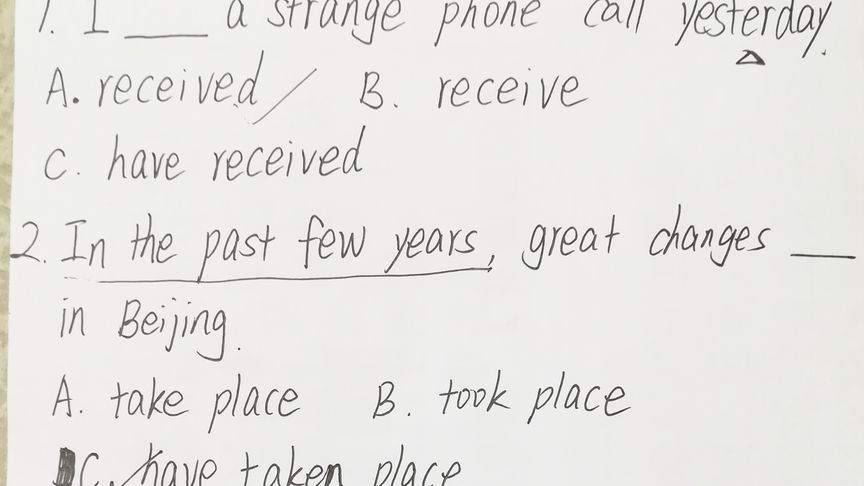 1. I ____ a strange phone call yesterday.
A. received B. receive
C. have received
2. In the past few years, great changes ___
in Beijing.
A. take place B. took place
C. have taken place